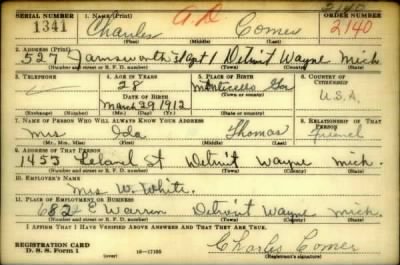 2140
SERIAL NUMBER 1. NAME (Print) ORDER NUMBER
1341 Charles A.D Comer 2140
(First) (Middle) (Last)
2. ADDRESS (Print)
527 Apt 1 Detroit Wayne Mich
(Number and street or R. F. D. number) (Town) (County) (State)
3. TELEPHONE 4. AGE IN YEARS 5. PLACE OF BIRTH 6. COUNTRY OF CITIZENSHIP
28 Monticello Ga
DATE OF BIRTH (Town or county)
March 29 1912 U.S.A.
(Exchange) (Number) (Mo.) (Day) (Yr.) (State or country)
7. NAME OF PERSON WHO WILL ALWAYS KNOW YOUR ADDRESS 8. RELATIONSHIP OF THAT PERSON
Mrs Ida Thomas Friend
(Mr., Mrs., Miss) (First) (Middle) (Last)
9. ADDRESS OF THAT PERSON
1453 Leland St Detroit Wayne Mich.
(Number and street or R. F. D. number) (Town) (County) (State)
10. EMPLOYER'S NAME
Mrs W. White.
11. PLACE OF EMPLOYMENT OR BUSINESS
682 E Warren Detroit Wayne Mich.
(Number and street or R. F. D. number) (Town) (County) (State)
I AFFIRM THAT I HAVE VERIFIED ABOVE ANSWERS AND THAT THEY ARE TRUE.
REGISTRATION CARD
D. S. S. Form 1 (over) 16—17105 Charles Comer
(Registrant's signature)